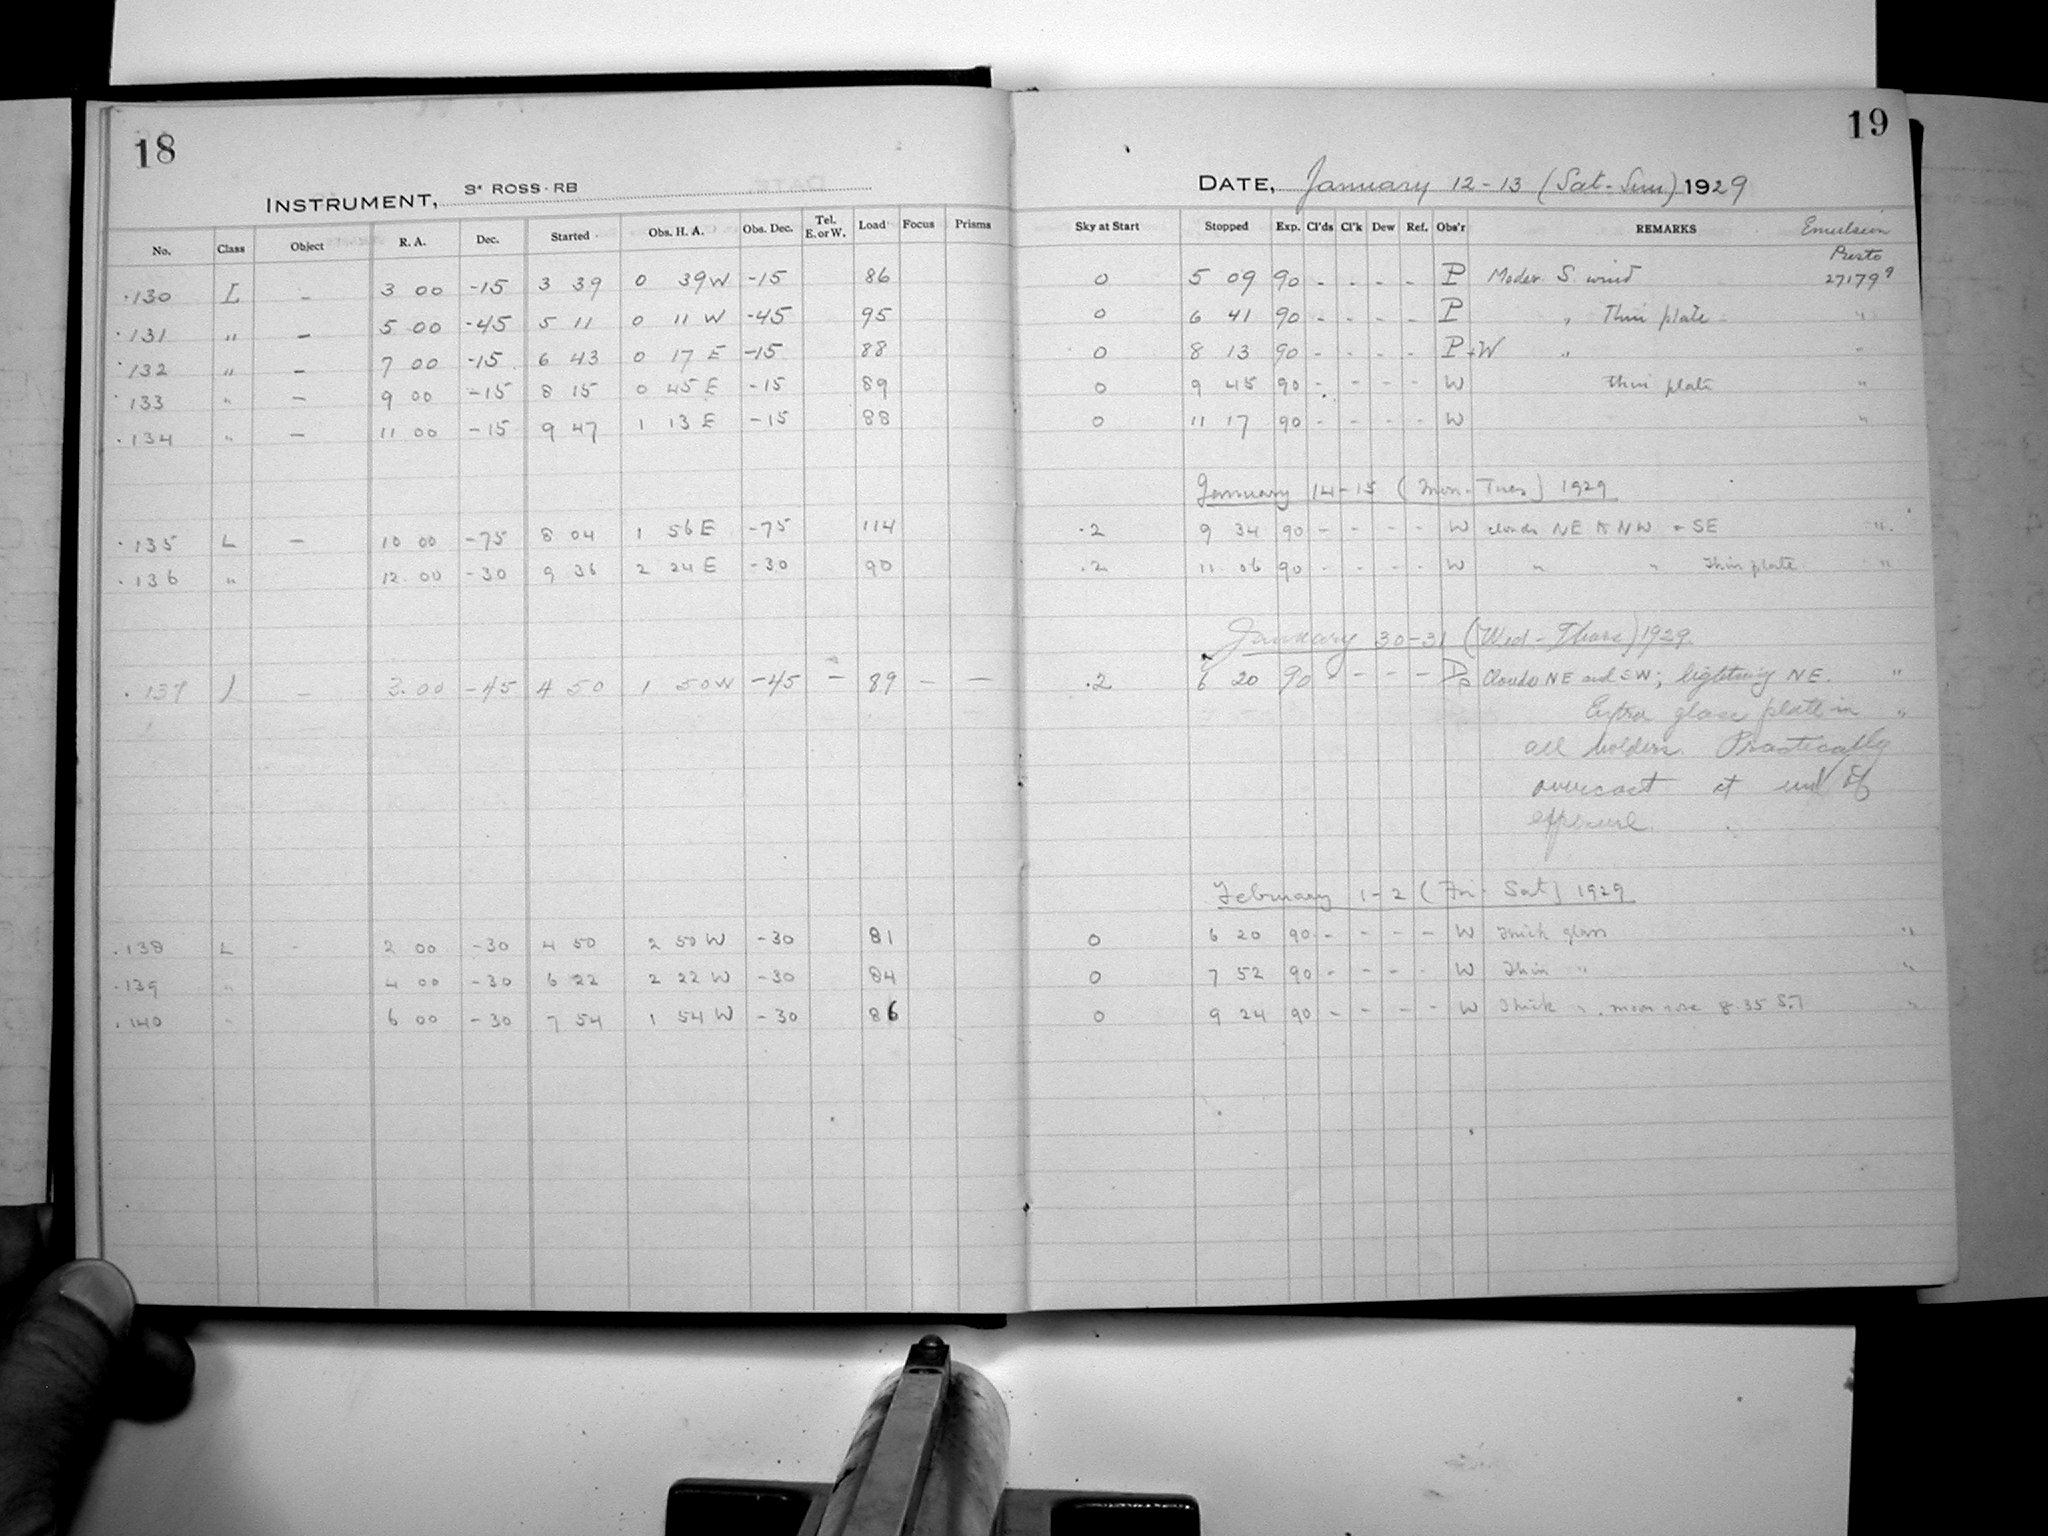 18
INSTRUMENT, 3" ROSS-RB
No. Class Object R. A. Dec. Started Obs. H. A. Obs. Dec. Tel. E. or W. Load Focus Prisms
·130 L - 3 00 -15 3 39 0 39 W -15 86
·131 " - 5 00 -45 5 11 0 11 W -45 95
·132 " - 7 00 -15 6 43 0 17 E -15 88
·133 " - 9 00 -15 8 15 0 45 E -15 89
·134 " - 11 00 -15 9 47 1 13 E -15 88
·135 L - 10 00 -75 8 04 1 56 E -75 114
·136 " 12 00 -30 9 36 2 24 E -30 90
·137 L - 3 00 -45 4 50 1 50 W -45 - 89 - -
·138 L - 2 00 -30 4 50 2 50 W -30 81
·139 " 4 00 -30 6 22 2 22 W -30 84
·140 " 6 00 -30 7 54 1 54 W -30 86
19
DATE, January 12-13 (Sat-Sun) 1929
Sky at Start Stopped Exp. Cl'ds Cl'k Dew Ref. Obs'r REMARKS Emulsion
Presto
0 5 09 90 - - - - P Moder. S. wind 27179
0 6 41 90 - - - - P " Thin plate "
0 8 13 90 - - - - P+W " "
0 9 45 90 - - - - W thin plate "
0 11 17 90 - - - - W "
January 14-15 (Mon-Tues) 1929
.2 9 34 90 - - - - W clouds NE to NW + SE "
.2 11 06 90 - - - - W " " Thin plate "
January 30-31 (Wed-Thurs) 1929
.2 6 20 90 - - - - Clouds NE and SW; lightning NE. "
Extra glass plate in "
all holders. Practically
overcast at end of
exposure.
February 1-2 (Fri-Sat) 1929
0 6 20 90 - - - - W Thick glass "
0 7 52 90 - - - - W Thin " "
0 9 24 90 - - - - W Thick ". moon rose 8.35 S.T "